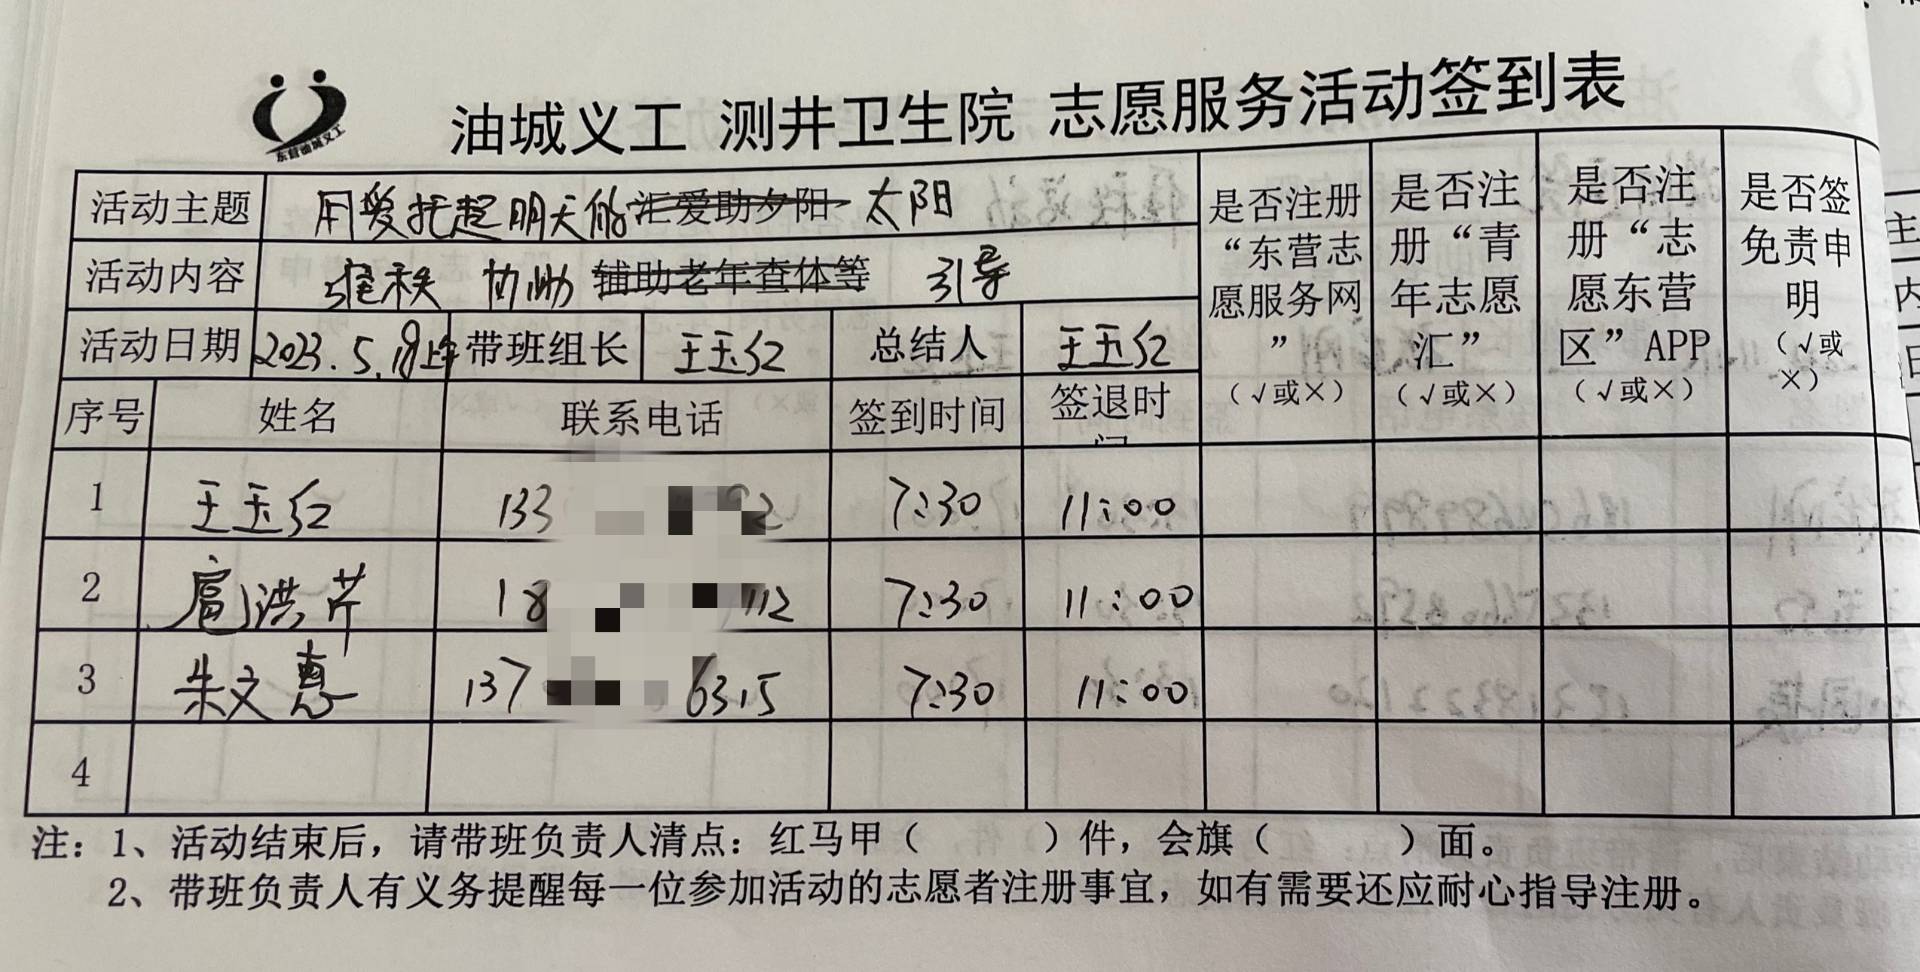 东营油城义工
油城义工 测井卫生院 志愿服务活动签到表
活动主题 用爱托起明天的 汇爱助夕阳 太阳
活动内容 维秩 协助 辅助老年查体等 引导
活动日期 2023.5.18上午 带班组长 王玉红 总结人 王玉红
是否注册“东营志愿服务网”(√或×)
是否注册“青年志愿汇”(√或×)
是否注册“志愿东营区”APP(√或×)
是否签免责申明(√或×)
序号 姓名 联系电话 签到时间 签退时
1 王玉红 133 92 7:30 11:00
2 扈洪芹 18 112 7:30 11:00
3 朱文惠 137 6315 7:30 11:00
4
注：1、活动结束后，请带班负责人清点：红马甲（ ）件，会旗（ ）面。
2、带班负责人有义务提醒每一位参加活动的志愿者注册事宜，如有需要还应耐心指导注册。